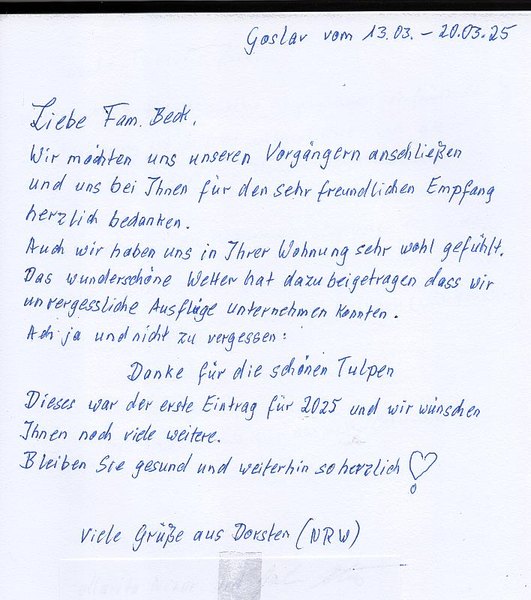 Goslar vom 13.03. – 20.03.25
Liebe Fam. Beck,
Wir möchten uns unseren Vorgängern anschließen
und uns bei Ihnen für den sehr freundlichen Empfang
herzlich bedanken.
Auch wir haben uns in Ihrer Wohnung sehr wohl gefühlt.
Das wunderschöne Wetter hat dazu beigetragen dass wir
unvergessliche Ausflüge unternehmen konnten.
Ach ja und nicht zu vergessen:
Danke für die schönen Tulpen
Dieses war der erste Eintrag für 2025 und wir wünschen
Ihnen noch viele weitere.
Bleiben Sie gesund und weiterhin so herzlich
Viele Grüße aus Dorsten (NRW)